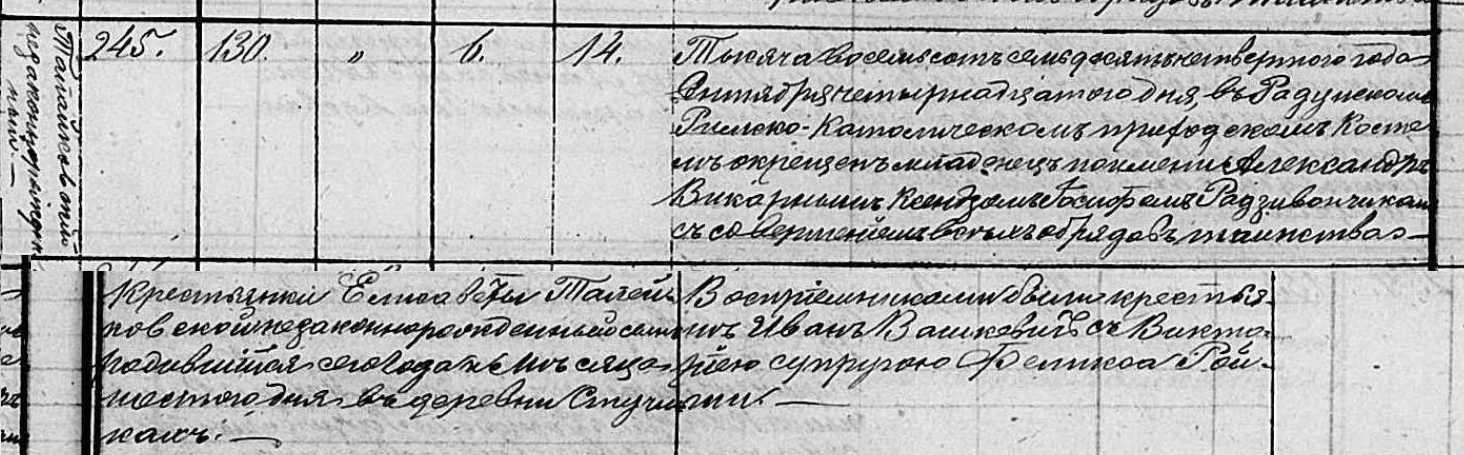 Талайковский
незаконнорожден
ный. —
245. 130. „ 6. 14.
Тысяча восемьсотъ семьдесятъ четвертого года
Сентября четырнадцатого дня, въ Радунскомъ
Римско-Католическомъ приходскомъ Косте-
лѣ окрещенъ младенецъ по имени Александръ
Викарнымъ Ксендзомъ Іосифомъ Радзивончикомъ
съ совершеніемъ всѣхъ обрядовъ таинства. —
Крестьянки Елисаветы Талай-
ковской незаконнорожденный сынъ
родившійся сего года и мѣсяца
шестого дня въ деревни Стучи-
кахъ. —
Воспріемниками были крестья-
нъ Иванъ Вашкевичъ съ Викто-
ріею супругою Феликса